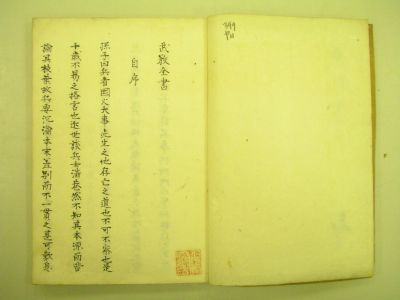 武教全書
自序
孫子曰兵者國之大事死生之地存亡之道也不可不察也是
千歳不易之格言也近世談兵者滿
然不知其本源而皆
論其枝葉故兵
本末差別而不一貫之
可歎息